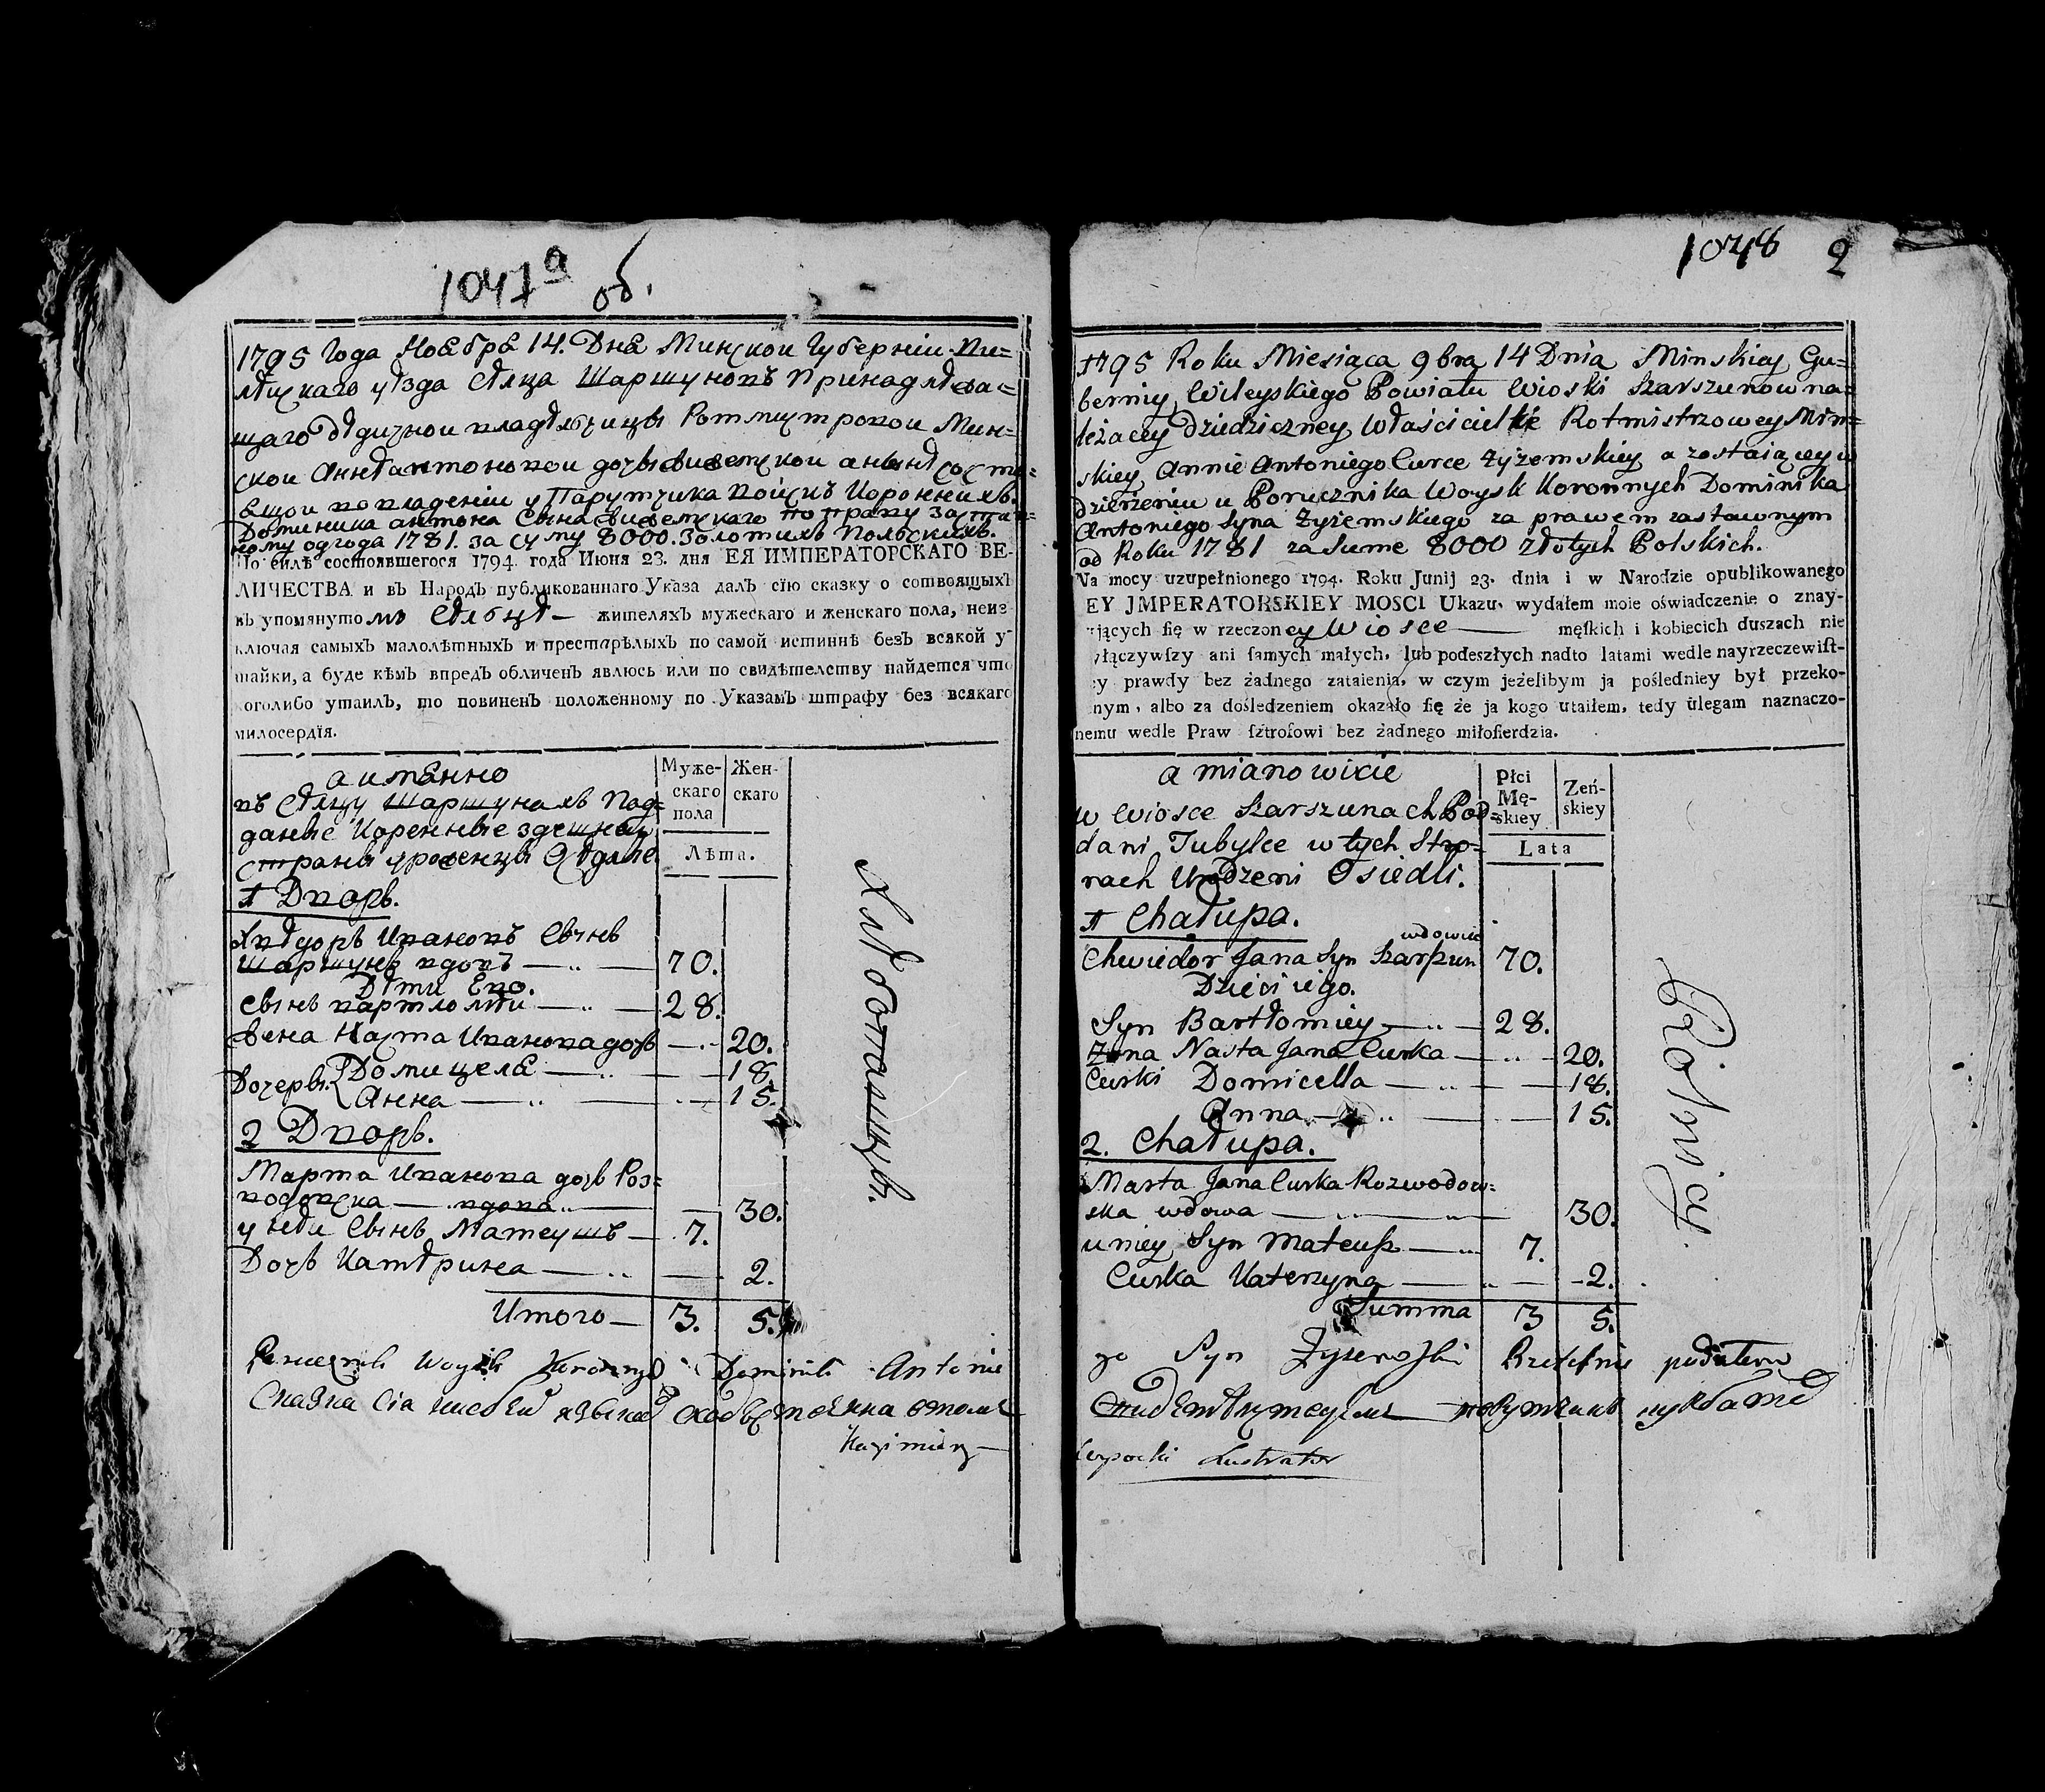 1047а об.
1795 Года Ноября 14. Дня Минской Губерніи Ви=
лѣйскаго уѣзда Сѣлца Шаршуновъ Принадлѣжа=
щаго дѣдичной владѣлницы Ротмистровой Мин=
ской Аннѣ Антоновой дочь Жижемской а нынѣ состо=
ящой во владеніи у Парутчика войскъ Коронныхъ
Доминика Антона Сына Жижемскаго по праву застав=
ному од года 1781. за суму 8000. Золотихъ Полскихъ.
По силѣ состоявшегося 1794. года Июня 23. дня ЕЯ ИМПЕРАТОРСКАГО ВЕ-
ЛИЧЕСТВА и въ Народъ публикованнаго Указа далъ сїю сказку о сотвоящыхъ
въ упомянутомъ Сѣльцѣ — жителяхъ мужескаго и женскаго пола, неиз
ключая самыхъ малолѣтныхъ и престарѣлыхъ по самой истиннѣ безъ всякой у-
тайки, а буде кѣмъ впредъ обличенъ явлюсь или по свидѣтелству найдется что
коголибо утаилъ, то повиненъ положенному по Указамъ штрафу без всякаго
милосердїя.
а имянно
въ Сѣлцу Шаршунахъ Под=
даные Коренные здешней
страны уроженцы
Муже-
скаго
пола
Жен-
скаго
Лѣта.
1 Дворъ.
Хвѣдоръ Ивановъ Сынъ
Шаршунъ вдовъ — 70.
Дѣти Ево.
Сынъ Вартломѣй — 28.
Жена Наста Иванова дочь — 20.
Дочеры Домицеля — 18.
Анна — 15.
2 Дворъ.
Марта Иванова дочь Роз=
водовска — вдова — 30.
у неи Сынъ Матеушъ — 7.
Дочь Катѣрина — 2.
Итого — 3. 5.
Хлѣботашцы.
Porucznik Woysk Koronnych Dominik Antonie
Сказка сія
Kazimierz
1048 2
1795 Roku Miesiąca 9bra 14 Dnia Minskiey Gu=
berniy Wileyskiego Powiatu Wioski Szarszunow na=
leżącey dziedziczney Właścicielkie Rotmistrzowey Min=
skiey Annie Antoniego Curce Zyżemskiey a zostaiącey w
dzierżeniu u Porucznika Woysk Koronnych Dominika
Antoniego Syna Zyżemskiego za prawem zastawnym
od Roku 1781 za Sume 8000 złotych Polskich.
Na mocy uzupełnionego 1794. Roku Junij 23. dnia i w Narodzie opublikowanego
EY JMPERATORSKIEY MOSCI Ukazu, wydałem moie oświadczenie o znay-
ujących się w rzeczoney Wiosce — męskich i kobiecich duszach nie
yłączywszy ani samych małych, lub podeszłych nadto latami wedle nayrzeczewist-
ey prawdy bez żadnego zataienia, w czym jeżelibym ja pośledniey był przeko-
nym, albo za dośledzeniem okazało się że ja kogo utaiłem, tedy ulegam naznaczo-
nemu wedle Praw sztrofowi bez żadnego miłosierdzia.
a mianowicie
w Wiosce Szarszunach Pod=
dani Tubylce w tych Stro=
nach Urodzeni Osiedli.
Płci
Mę-
skiey
Zeń-
skiey
Lata
1 Chałupa.
wdowiec
Chwiedor Jana Syn Szarszun 70.
Dzieci iego.
Syn Bartłomiey — 28.
Zona Nasta Jana Curka — 20.
Curki Domicella — 18.
Anna — 15.
2. Chałupa.
Marta Jana Curka Rozwodow=
ska wdowa — 30.
u niey Syn Mateusz — 7.
Curka Katerzyna — 2.
Summa 3 5.
Rolnicy.
go Syn
Lustrator